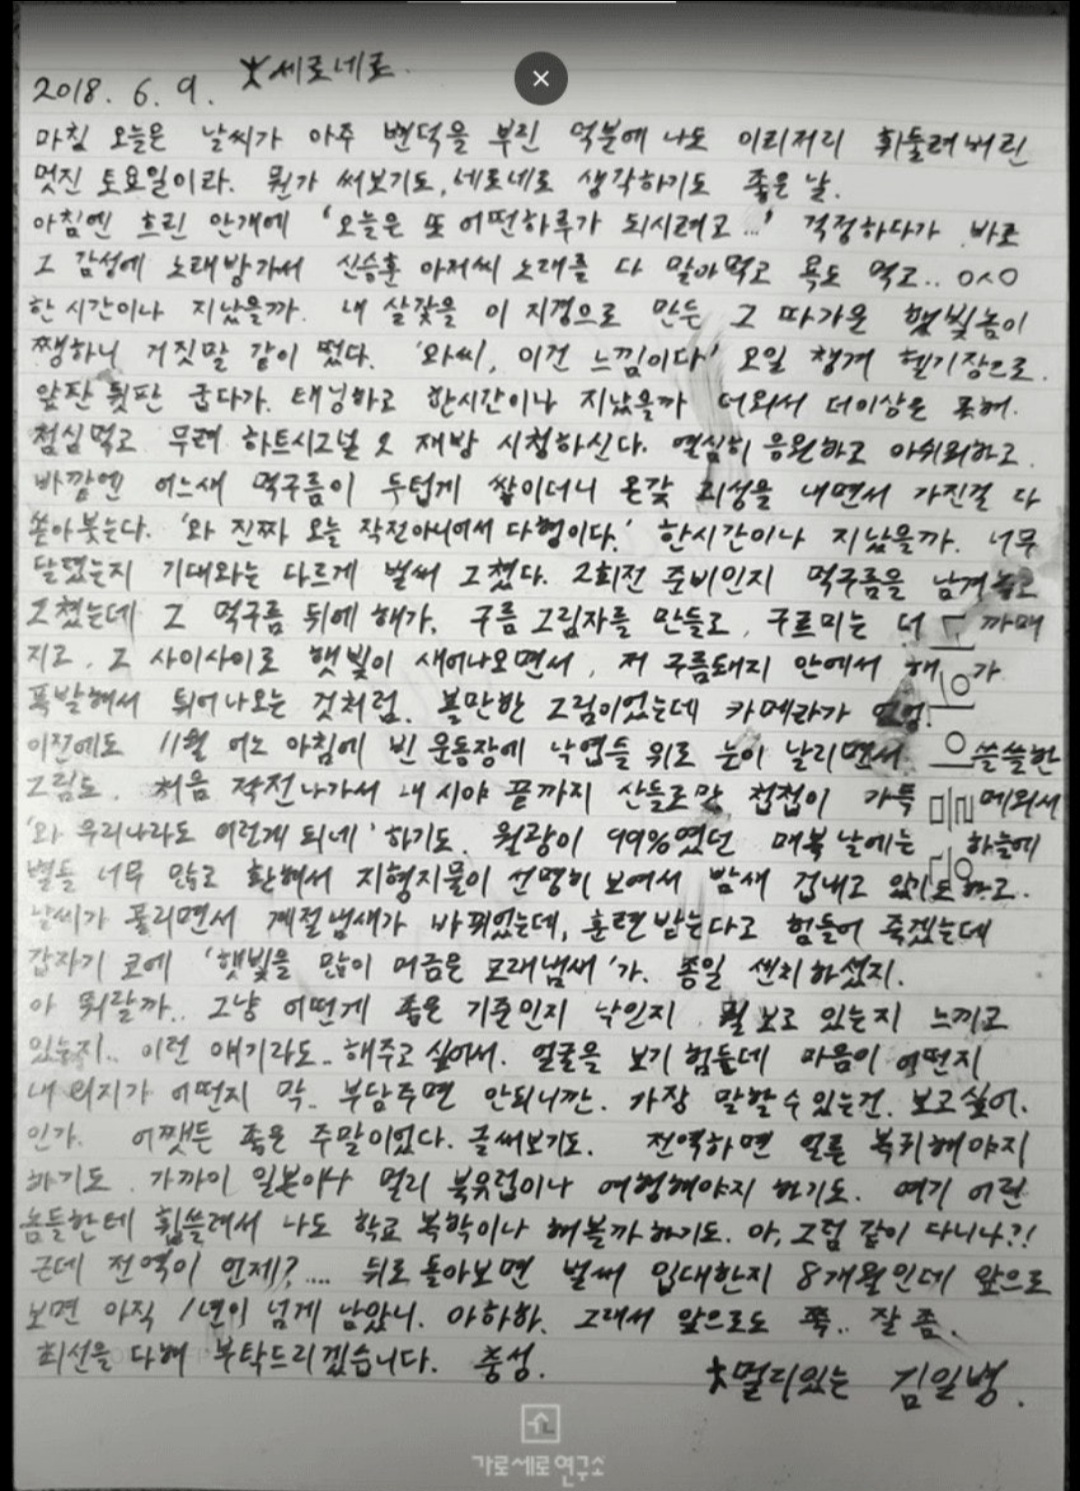 2018. 6. 9. 세로네로.
마침 오늘은 날씨가 아주 변덕을 부린 덕분에 나도 이리저리 휘둘려버린
멋진 토요일이라. 뭔가 써보기도, 네로네로 생각하기도 좋은 날.
아침엔 흐린 안개에 '오늘은 또 어떤하루가 되시려고...' 걱정하다가 바로
그 감성에 노래방가서 신승훈 아저씨 노래를 다 말아먹고 욕도 먹고.. ㅇㅅㅇ
한 시간이나 지났을까. 내 살갗을 이 지경으로 만든 그 따가운 햇빛놈이
쨍하니 거짓말 같이 떴다. '와씨, 이건 느낌이다' 오일 챙겨 헬기장으로.
앞판 뒷판 굽다가. 태닝하고 한시간이나 지났을까 더워서 더이상은 못해.
점심먹고 무려 하트시그널 2 재방 시청하신다. 열심히 응원하고 아쉬워하고.
바깥엔 어느새 먹구름이 두텁게 쌓이더니 온갖 괴성을 내면서 가진걸 다
쏟아붓는다. '와 진짜 오늘 작전아니어서 다행이다.' 한시간이나 지났을까. 너무
달렸는지 기대와는 다르게 벌써 그쳤다. 2회전 준비인지 먹구름을 남겨놓고
그쳤는데 그 먹구름 뒤에 해가. 구름 그림자를 만들고, 구르미는 더 까매
지고. 그 사이사이로 햇빛이 새어나오면서, 저 구름돼지 안에서 해가
폭발해서 튀어나오는 것처럼. 볼만한 그림이었는데 카메라가 없엉.
이전에도 11월 어느 아침에 빈 운동장에 낙엽들 위로 눈이 날리면서 쓸쓸한
그림도. 처음 작전나가서 내 시야 끝까지 산들로만 첩첩이 가득 메워서
'와 우리나라도 이런게 되네' 하기도. 월광이 99%였던 매복날에는 하늘에
별들 너무 많고 환해서 지형지물이 선명히 보여서 밤새 겁내고 있기도하고..
날씨가 풀리면서 계절냄새가 바뀌었는데, 훈련받는다고 힘들어 죽겠는데
갑자기 코에 '햇빛을 많이 머금은 모래냄새'가. 종일 센치하셨지.
아 뭐랄까.. 그냥 어떤게 좋은 기준인지 낙인지 뭘 보고 있는지 느끼고
있는지.. 이런 얘기라도.. 해주고 싶어서. 얼굴을 보기 힘든데 마음이 어떤지
내 의지가 어떤지 막.. 부담주면 안되니깐. 가장 말할수있는건. 보고싶어.
인가. 어쨋든 좋은 주말이었다. 글써보기도. 전역하면 얼른 복귀해야지
하기도. 가까이 일본이나 멀리 북유럽이나 여행해야지 하기도. 여기 어린
놈들한테 휩쓸려서 나도 학교 복학이나 해볼까하기도. 아, 그럼 같이 다니나?!
근데 전역이 언제?.... 뒤로 돌아보면 벌써 입대한지 8개월인데 앞으로
보면 아직 1년이 넘게 남았니. 아하하. 그래서 앞으로도 쭉.. 잘 좀.
최선을 다해 부탁드리겠습니다. 충성.
멀리있는 김일병.
고 외 으 미 난
가로세로연구소